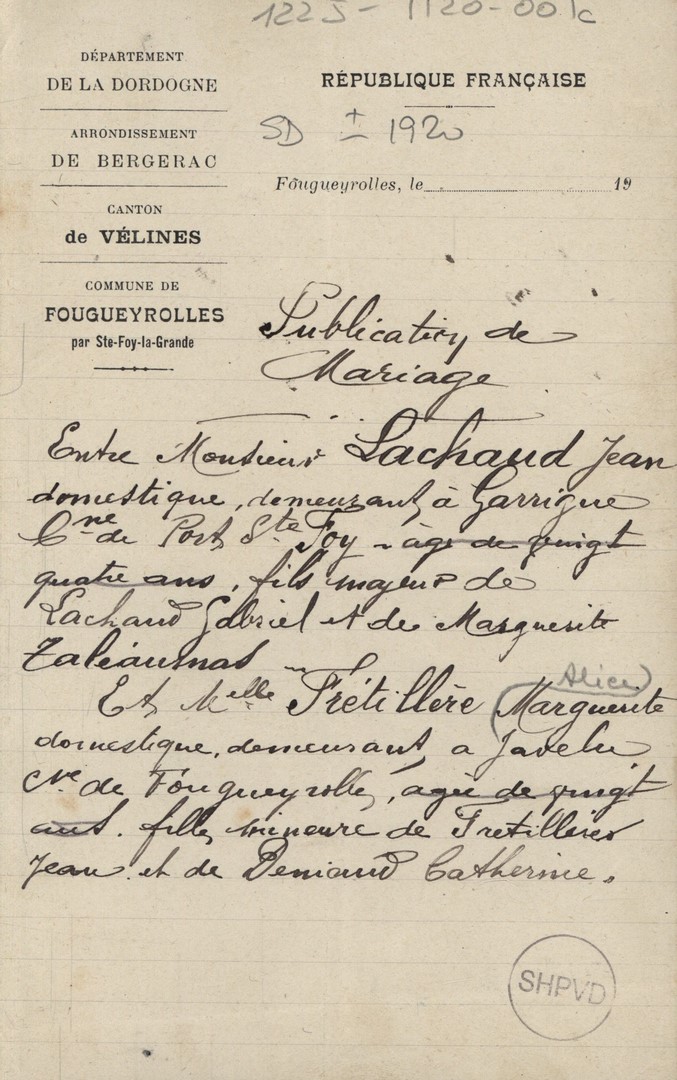 1225 - 1120-001c
DÉPARTEMENT
DE LA DORDOGNE
ARRONDISSEMENT
DE BERGERAC
CANTON
de VÉLINES
COMMUNE DE
FOUGUEYROLLES
par Ste-Foy-la-Grande
RÉPUBLIQUE FRANÇAISE
SD ± 1920
Fougueyrolles, le 19
Publication de
Mariage
Entre Monsieur Lachaud Jean
domestique, demeurant à Garrigue
Cne de Port Ste Foy - âgé de vingt
quatre ans, fils majeur de
Lachaud Gabriel et de Marguerite
Et Melle Frétillère (Marguerite
Alice)
domestique, demeurant, a Javelu
Cne de Fougueyrolles, agée de vingt
ans. fille mineure de Fretillère
Jean et de Deniaud Catherine.
SHPVD